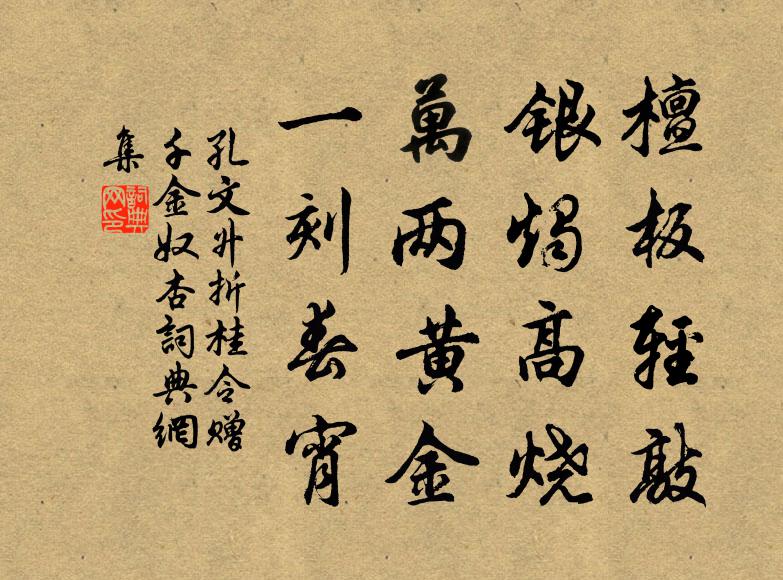 檀板輕敲
銀燭高燒
萬两黄金
一刻春宵
孔文升折桂令赠
千金奴杏詞典網
集
詞典
网印